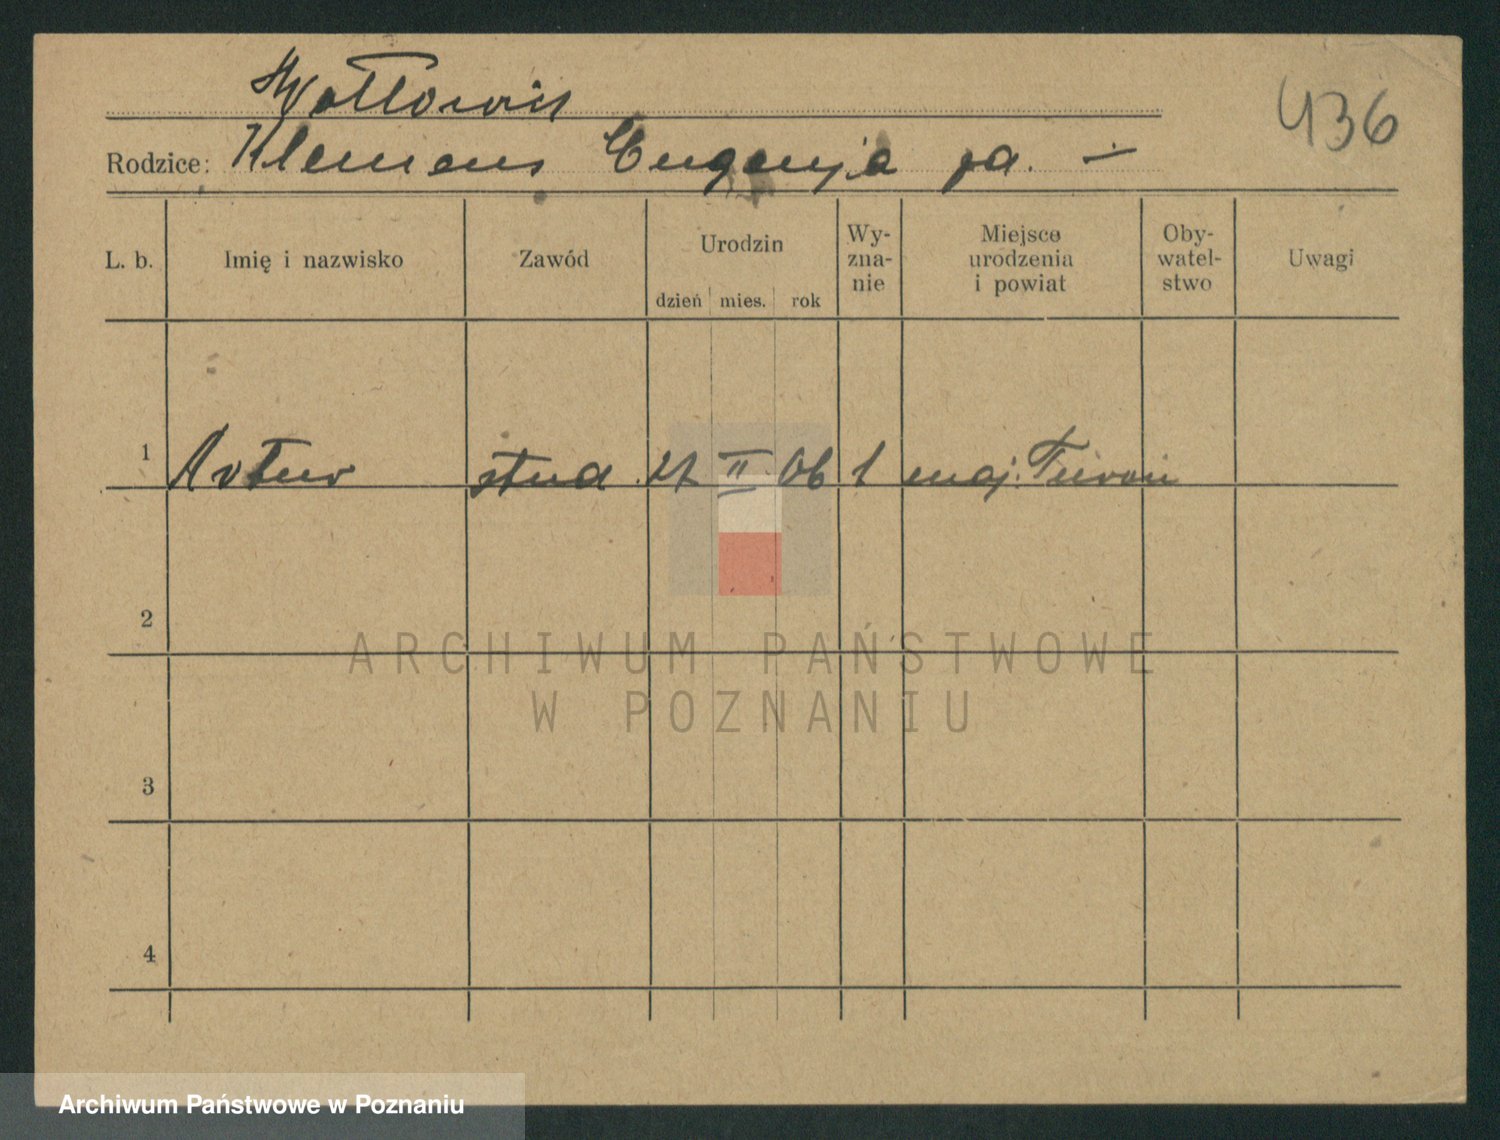 436
Wołłowicz
Rodzice: Klemens Eugenja za. —
L. b. Imię i nazwisko Zawód Urodzin dzień mies. rok Wy-zna-nie Miejsce urodzenia i powiat Oby-watel-stwo Uwagi
1 Artur stud 27 II 06 1 maj.
2
3
4
ARCHIWUM PAŃSTWOWE
W POZNANIU
Archiwum Państwowe w Poznaniu